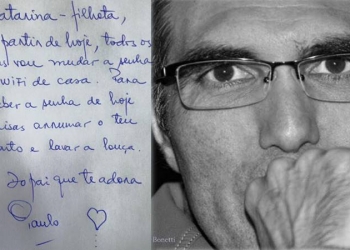 atarina - filhota,
partir de hoje, todos os
vou mudar a senha
WiFi de casa. Para
ber a senha de hoje
isas arrumar o teu
rto e lavar a louça.
Do pai que te adora
Paulo
Bonetti